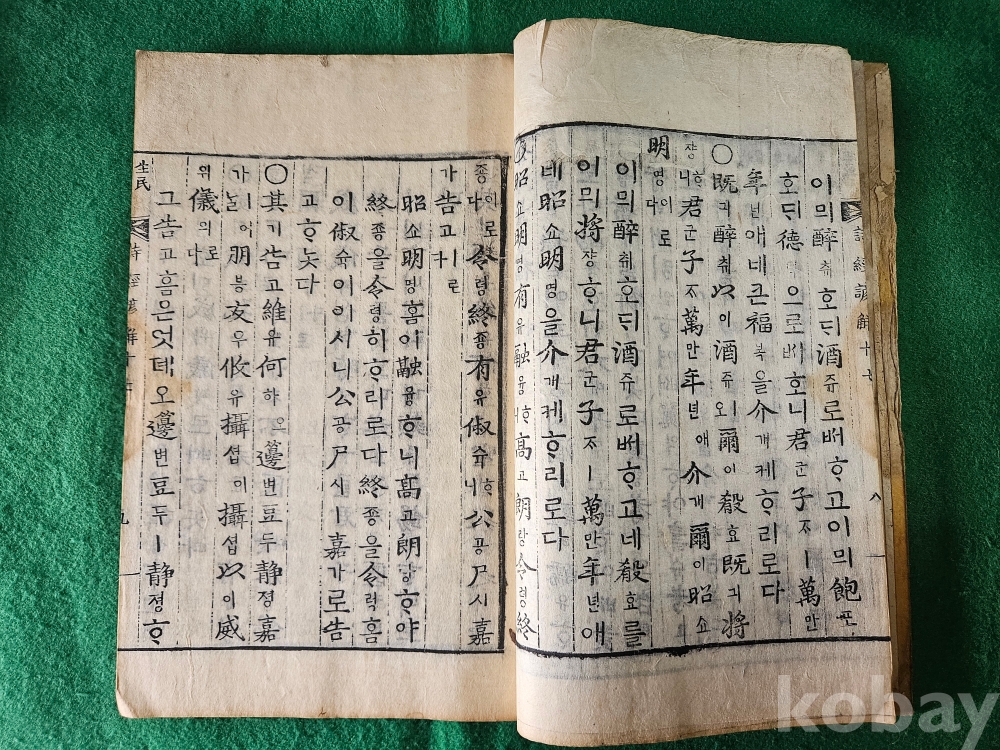 詩經諺解十七 八
이믜醉취호ᄃᆡ酒쥬로ᄡᅥᄒᆞ고이믜飽포
호ᄃᆡ德덕으로ᄡᅥ호니君군子ᄌᆞㅣ萬만
年년애네큰福복을介개케ᄒᆞ리로다
○既긔醉취以이酒쥬오爾이殽효既긔將
쟝ᄒᆞ니君군子ᄌᆞ萬만年년애介개爾이昭쇼
明명이로다
이믜醉취호ᄃᆡ酒쥬로ᄡᅥᄒᆞ고네殽효를
이믜將쟝ᄒᆞ니君군子ᄌᆞㅣ萬만年년애
네昭쇼明명을介개케ᄒᆞ리로다
○昭쇼明명有유融융ᄒᆞ니高고朗랑令령終
죵이로다令령終죵有유俶슉ᄒᆞ니公공尸시嘉
가告고
昭쇼明명홈이融융ᄒᆞ니高고朗랑ᄒᆞ야
終죵을令령히ᄒᆞ리로다終죵을令령홈
이俶슉이이시니公공尸시ㅣ嘉가로告
고ᄒᆞ놋다
○其기告고維유何하오籩변豆두靜졍嘉
가ㅣ어ᄂᆞᆯ朋븡友우攸유攝셥이攝셥以이威
위儀의로다
그告고홈은엇뎨오籩변豆두ㅣ靜졍ᄒᆞ
生民 詩經諺解十七 九
kobay